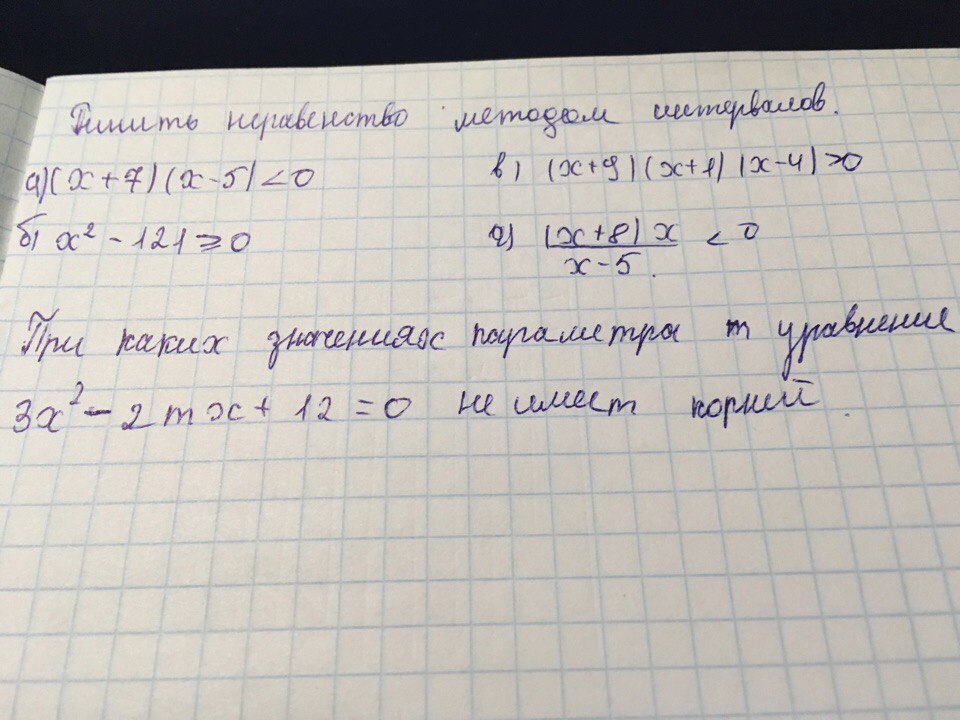 Решить неравенство методом интервалов.
а) (x+7)(x-5)<0
б) x² - 121 ≥ 0
в) (x+9)(x+1)(x-4)>0
г) (x+8)x / x-5 < 0
При каких значениях параметра m уравнение
3x² - 2mx + 12 = 0 не имеет корней.